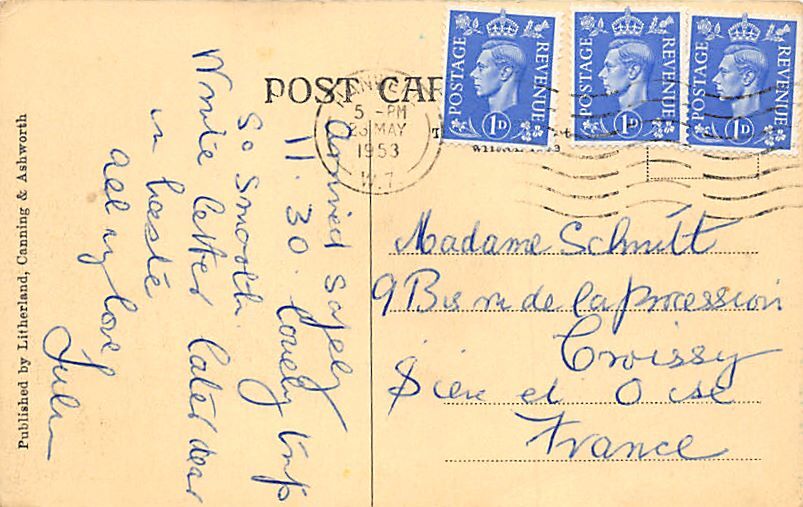 POST CAR
POSTAGE REVENUE
1D
POSTAGE REVENUE
1D
POSTAGE REVENUE
1D
5 - PM
MAY
1953
W.7.
arrived safely
11.30. lovely trip
So Smooth.
Write letter later dear
in haste
all my love
Madame Schmitt
9 Bis rue de la procession
Croissy
Seine et Oise
France
Published by Litherland, Canning & Ashworth